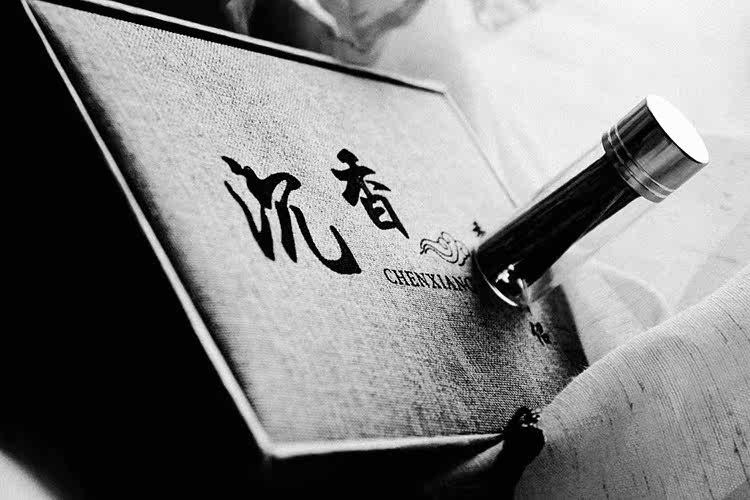 沉香
CHENXIANG